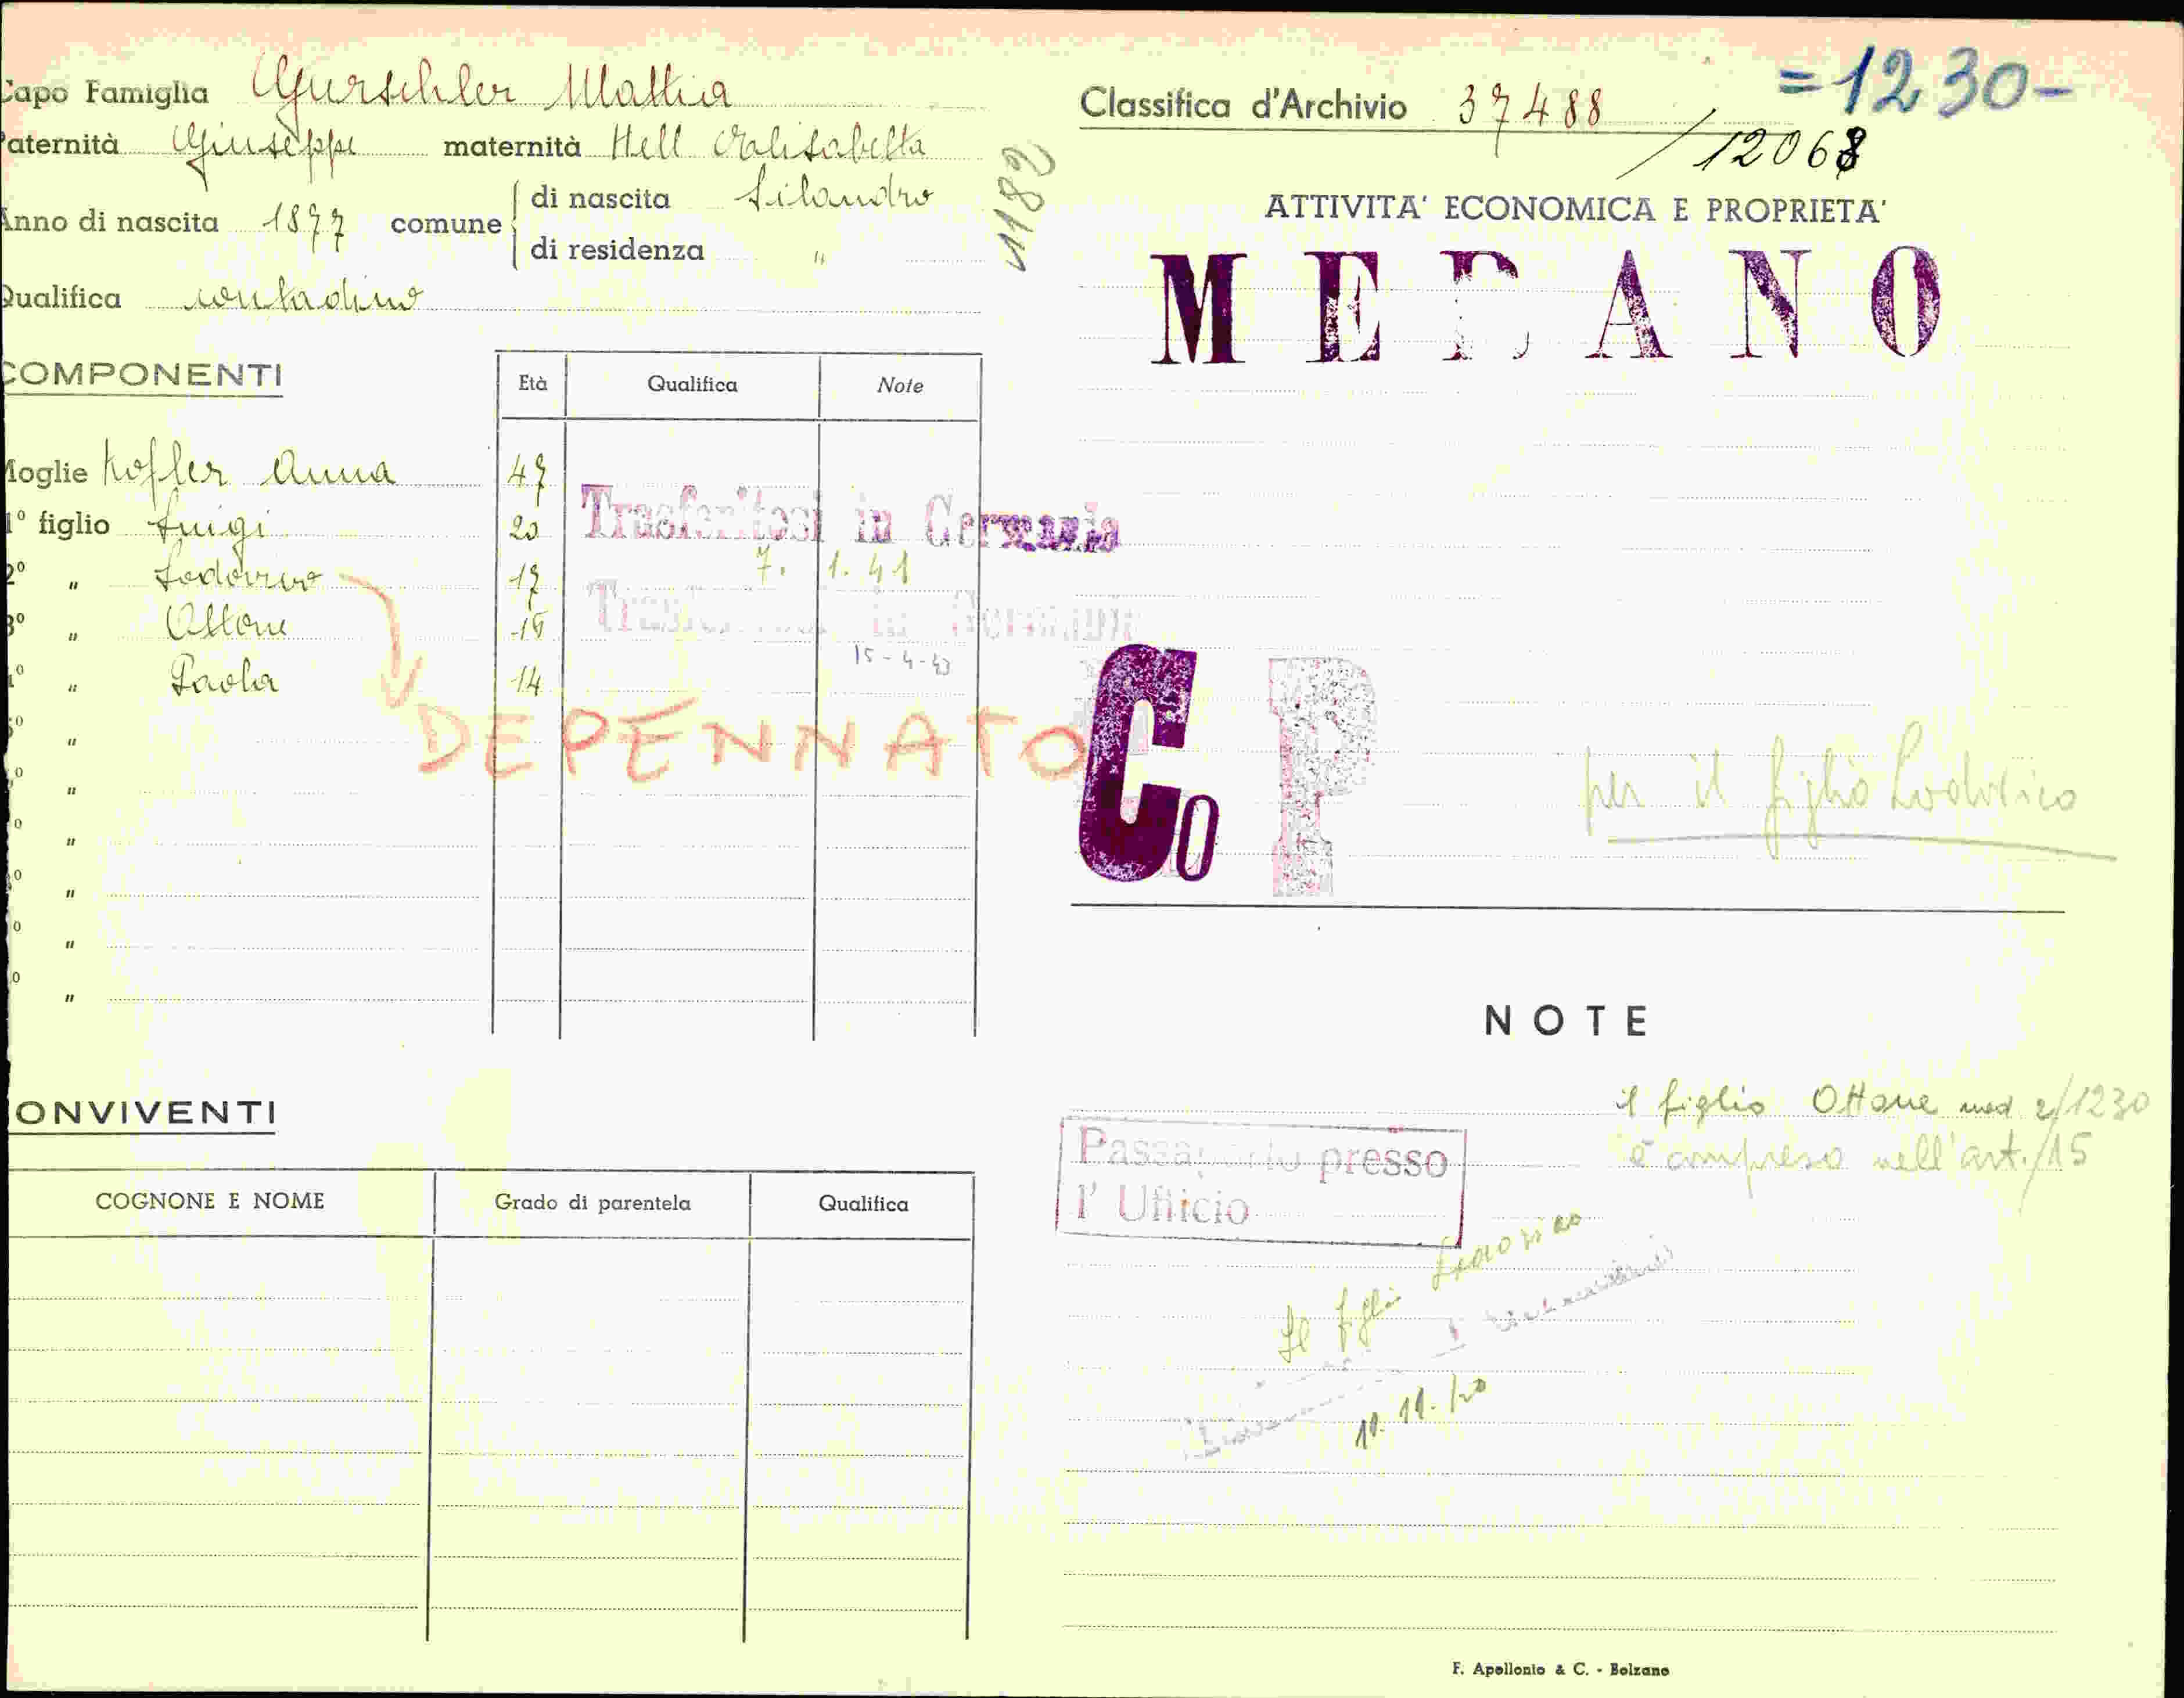 Capo Famiglia Gurschler Mattia
Paternità Giuseppe maternità Hell Elisabetta
Anno di nascita 1877 comune di nascita Silandro
di residenza "
Qualifica contadino
1182
COMPONENTI
Età Qualifica Note
Moglie Kofler Anna 47
1° figlio Luigi 20 Trasferitosi in Germania
2° " Lodovico 17 7. 1. 41
3° " Ottone 15 Trasferitosi in Germania
15-4-43
4° " Paola 14
DEPENNATO
CONVIVENTI
COGNONE E NOME Grado di parentela Qualifica
=1230-
Classifica d'Archivio 37488 /12068
ATTIVITA' ECONOMICA E PROPRIETA'
MERANO
Co P
per il figlio Lodovico
NOTE
il figlio Ottone med 2/1230
è compreso nell'art./15
Passaporto presso
l' Ufficio
Il figlio Lodovico
10.11.40
F. Apollonio & C. - Bolzano